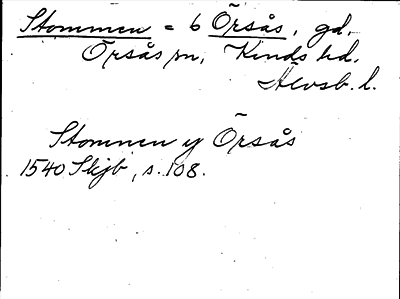 Stommen = 6 Örsås, gd.
Örsås sn, Kinds hd.
Älvsb. l.
Stomnen y Örsås
1540 Skjb, s. 108.